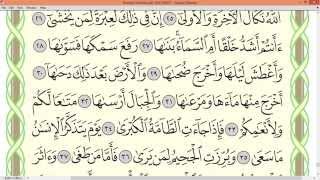 ٱللَّهُ نَكَالَ ٱلْءَاخِرَةِ وَٱلْأُولَىٰٓ ٢٥ إِنَّ فِى ذَٰلِكَ لَعِبْرَةً لِّمَن يَخْشَىٰٓ
٢٦ ءَأَنتُمْ أَشَدُّ خَلْقًا أَمِ ٱلسَّمَآءُ بَنَىٰهَا ٢٧ رَفَعَ سَمْكَهَا فَسَوَّىٰهَا
٢٨ وَأَغْطَشَ لَيْلَهَا وَأَخْرَجَ ضُحَىٰهَا ٢٩ وَٱلْأَرْضَ بَعْدَ ذَٰلِكَ دَحَىٰهَآ
٣٠ أَخْرَجَ مِنْهَا مَآءَهَا وَمَرْعَىٰهَا ٣١ وَٱلْجِبَالَ أَرْسَىٰهَا ٣٢ مَتَٰعًا لَّكُمْ
وَلِأَنْعَٰمِكُمْ ٣٣ فَإِذَا جَآءَتِ ٱلطَّآمَّةُ ٱلْكُبْرَىٰ ٣٤ يَوْمَ يَتَذَكَّرُ ٱلْإِنسَٰنُ
مَا سَعَىٰ ٣٥ وَبُرِّزَتِ ٱلْجَحِيمُ لِمَن يَرَىٰ ٣٦ فَأَمَّا مَن طَغَىٰ ٣٧ وَءَاثَرَ